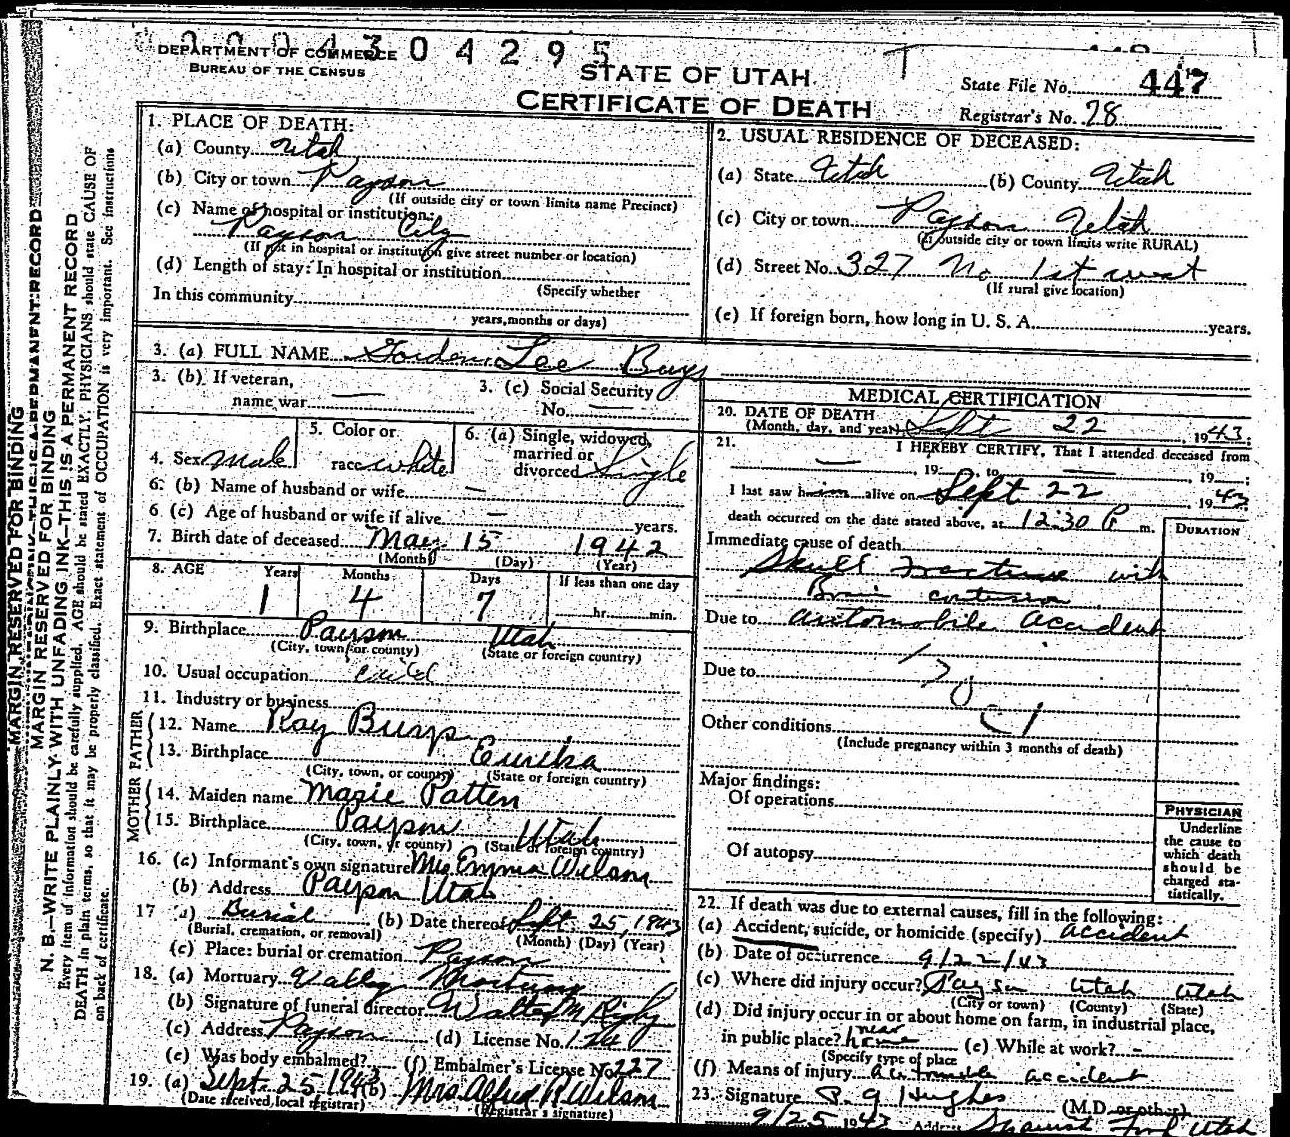 0 0 0 4 3 0 4 2 9 5
DEPARTMENT OF COMMERCE
BUREAU OF THE CENSUS
STATE OF UTAH
CERTIFICATE OF DEATH
State File No. 447
Registrar's No. 28
MARGIN RESERVED FOR BINDING
MARGIN RESERVED FOR BINDING
N. B.—WRITE PLAINLY WITH UNFADING INK—THIS IS A PERMANENT RECORD
Every item of information should be carefully supplied. AGE should be stated EXACTLY. PHYSICIANS should state CAUSE OF
DEATH in plain terms, so that it may be properly classified. Exact statement of OCCUPATION is very important. See instructions
on back of certificate.
1. PLACE OF DEATH:
(a) County Utah
(b) City or town Payson
(If outside city or town limits name Precinct)
(c) Name of hospital or institution:
Payson City
(If not in hospital or institution give street number or location)
(d) Length of stay: In hospital or institution
(Specify whether
In this community
years, months or days)
2. USUAL RESIDENCE OF DECEASED:
(a) State Utah (b) County Utah
(c) City or town Payson Utah
(If outside city or town limits write RURAL)
(d) Street No. 327 No 1st west
(If rural give location)
(e) If foreign born, how long in U. S. A. years.
3. (a) FULL NAME Gordon Lee Buys
3. (b) If veteran,
name war —
3. (c) Social Security
No. —
4. Sex Male
5. Color or
race white
6. (a) Single, widowed,
married or
divorced Single
6. (b) Name of husband or wife —
6 (c) Age of husband or wife if alive — years.
7. Birth date of deceased May 15 1942
(Month) (Day) (Year)
8. AGE Years Months Days If less than one day
1 4 7 hr. min.
9. Birthplace Payson Utah
(City, town, or county) (State or foreign country)
10. Usual occupation child
11. Industry or business
FATHER
12. Name Ray Buys
13. Birthplace Eureka
(City, town, or county) (State or foreign country)
MOTHER
14. Maiden name Marie Patten
15. Birthplace Payson Utah
(City, town, or county) (State or foreign country)
16. (a) Informant's own signature Mrs. Emma Wilson
(b) Address Payson Utah
17 (a) Burial (b) Date thereof Sept. 25, 1943
(Burial, cremation, or removal) (Month) (Day) (Year)
(c) Place: burial or cremation Payson
18. (a) Mortuary Valley Mortuary
(b) Signature of funeral director Walter M Rigby
(c) Address Payson (d) License No.
(e) Was body embalmed? (f) Embalmer's License No. 227
19. (a) Sept. 25 1943 (b) Mrs. Alfred R. Wilson
(Date received local registrar) (Registrar's signature)
MEDICAL CERTIFICATION
20. DATE OF DEATH
(Month, day, and year) Sept 22, 1943;
21. I HEREBY CERTIFY, That I attended deceased from
—, 19— to —, 19—;
I last saw him alive on Sept 22, 1943
death occurred on the date stated above, at 12:30 P m.
DURATION
Immediate cause of death
Skull Fracture with
Brain contusion
Due to automobile accident
Due to
Other conditions
(Include pregnancy within 3 months of death)
Major findings:
Of operations
Of autopsy
PHYSICIAN
Underline
the cause to
which death
should be
charged sta-
tistically.
22. If death was due to external causes, fill in the following:
(a) Accident, suicide, or homicide (specify) accident
(b) Date of occurrence 9/22/43
(c) Where did injury occur? Payson Utah Utah
(City or town) (County) (State)
(d) Did injury occur in or about home on farm, in industrial place,
in public place? near home (e) While at work? -
(Specify type of place
(f) Means of injury automobile accident
23. Signature P. G Hughes (M.D. or other)
9/25 1943 Address Spanish Fork Utah